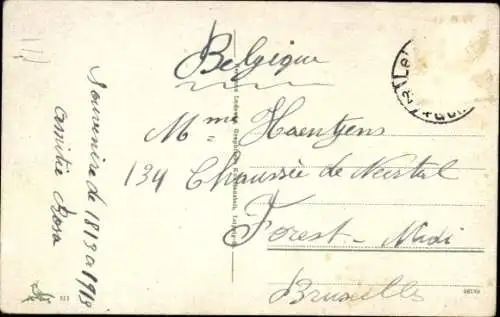 Belgique
Mme Haentjens
134 Chaussée de Neerstal
Forest-Midi
Bruxelles
Souvenire de 1819 a 1919
amitie Rosa